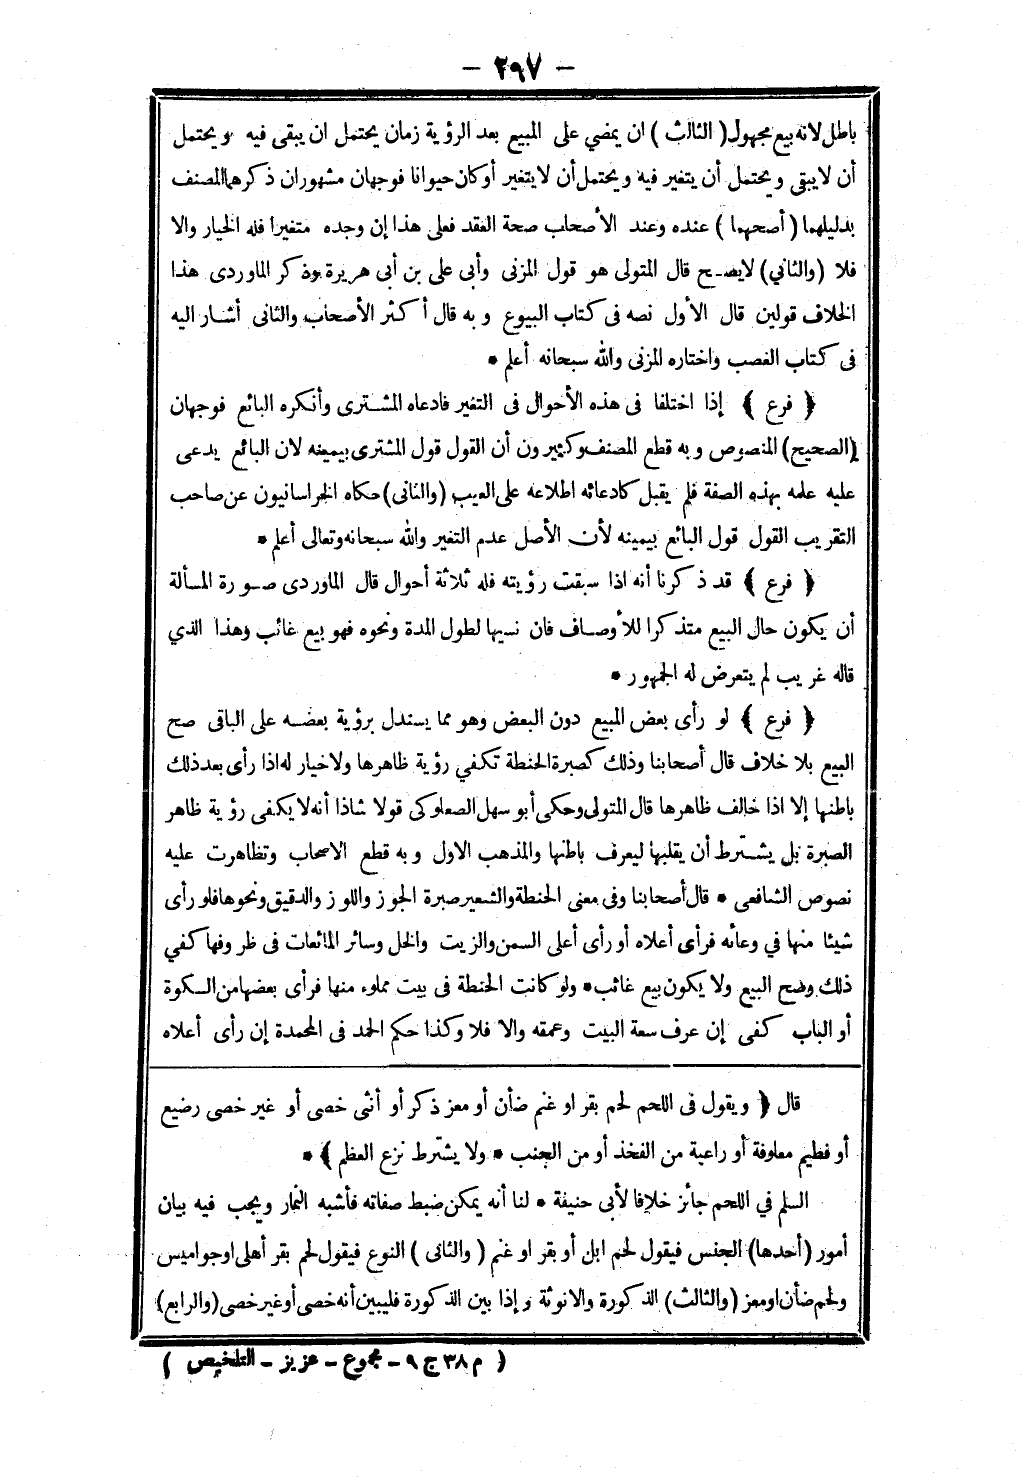 - ٢٩٧ -
باطل لانه بيع مجهول ( الثالث ) ان يمضي على المبيع بعد الرؤية زمان يحتمل ان يبقى فيه ويحتمل
أن لا يبقى ويحتمل أن يتغير فيه ويحتمل أن لا يتغير أو كان حيوانا فوجهان مشهوران ذكرهما المصنف
بدليلهما ( أصحهما ) عنده وعند الأصحاب صحة العقد فعلى هذا إن وجده متغيرا فله الخيار والا
فلا (والثاني) لا يصح قال المتولى هو قول المزنى وأبى على بن أبى هريرة وذكر الماوردى هذا
الخلاف قولين قال الأول نصه فى كتاب البيوع وبه قال أكثر الأصحاب والثانى أشار اليه
فى كتاب الغصب واختاره المزنى والله سبحانه أعلم *
﴿ فرع ﴾ إذا اختلفا فى هذه الأحوال فى التغير فادعاه المشترى وأنكره البائع فوجهان
(الصحيح) المنصوص وبه قطع المصنف وكثيرون أن القول قول المشترى بيمينه لان البائع يدعى
عليه علمه بهذه الصفة فلم يقبل كادعائه اطلاعه على العيب (والثانى) حكاه الخراسانيون عن صاحب
التقريب القول قول البائع بيمينه لأن الأصل عدم التغير والله سبحانه وتعالى أعلم *
﴿ فرع ﴾ قد ذكرنا أنه اذا سبقت رؤيته فله ثلاثة أحوال قال الماوردى صورة المسألة
أن يكون حال البيع متذكرا للأوصاف فان نسيها لطول المدة ونحوه فهو بيع غائب وهذا الذي
قاله غريب لم يتعرض له الجمهور *
﴿ فرع ﴾ لو رأى بعض المبيع دون البعض وهو مما يستدل برؤية بعضه على الباقى صح
البيع بلا خلاف قال أصحابنا وذلك كصبرة الحنطة تكفي رؤية ظاهرها ولا خيار له اذا رأى بعد ذلك
باطنها إلا اذا خالف ظاهرها قال المتولى وحكى أبو سهل الصعلوكى قولا شاذا أنه لا يكفى رؤية ظاهر
الصبرة بل يشترط أن يقلبها ليعرف باطنها والمذهب الاول وبه قطع الاصحاب وتظاهرت عليه
نصوص الشافعى * قال أصحابنا وفى معنى الحنطة والشعير صبرة الجوز واللوز والدقيق ونحوها فلو رأى
شيئا منها في وعائه فرأى أعلاه أو رأى أعلى السمن والزيت والخل وسائر المائعات فى ظروفها كفي
ذلك وصح البيع ولا يكون بيع غائب* ولو كانت الحنطة فى بيت مملوء منها فرأى بعضها من السكوة
أو الباب كفى إن عرف سعة البيت وعمقه والا فلا وكذا حكم الجمد فى المجمدة إن رأى أعلاه
قال ﴿ ويقول فى اللحم لحم بقر او غنم ضأن أو معز ذكر أو أنثى خصى أو غير خصى رضيع
أو فطيم معلوفة أو راعية من الفخذ أو من الجنب * ولا يشترط نزع العظم ﴾ *
السلم في اللحم جائز خلافا لأبى حنيفة * لنا أنه يمكن ضبط صفاته فأشبه الثمار ويجب فيه بيان
أمور (أحدها) الجنس فيقول لحم ابل أو بقر او غنم ( والثانى ) النوع فيقول لحم بقر أهلى او جواميس
ولحم ضأن او معز (والثالث) الذكورة والانوثة وإذا بين الذكورة فليبين أنه خصى أو غير خصى (والرابع)
( م ٣٨ ج ٩ - مجموع - عزيز - التلخيص )